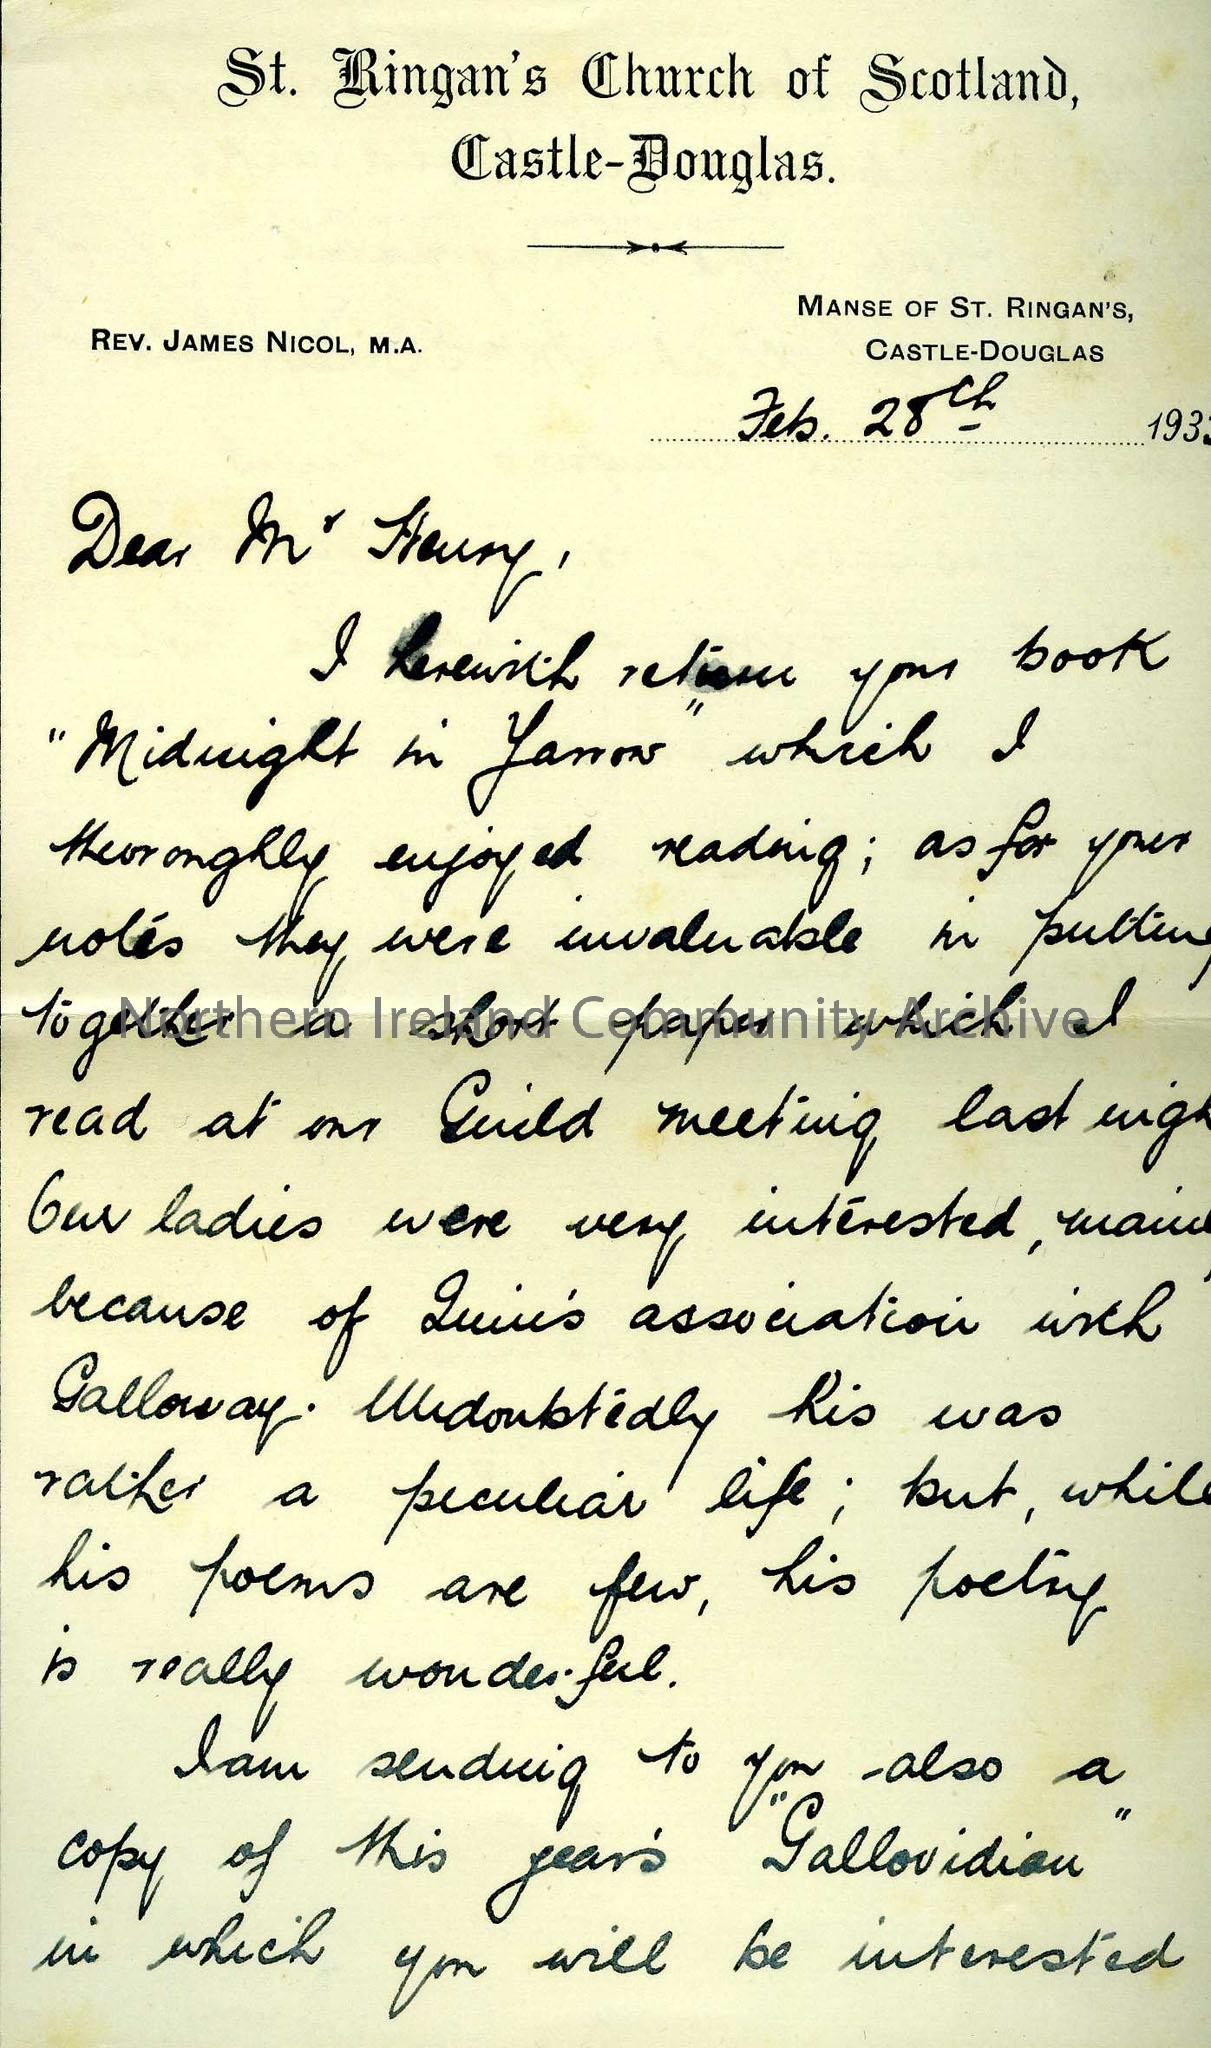 St. Ringan's Church of Scotland,
Castle-Douglas.
MANSE OF ST. RINGAN'S,
REV. JAMES NICOL, M.A.
CASTLE-DOUGLAS
Feb. 28th 193
Dear Mr Henry,
I herewith return your book
"Midnight in Yarrow" which I
thoroughly enjoyed reading; as for your
notes they were invaluable in putting
together a short paper which I
Northern Ireland Community Archive
read at our Guild meeting last nigh
Our ladies were very interested, mainly
because of Quin's association with
Galloway. Undoubtedly his was
rather a peculiar life; but, while
his poems are few, his poetry
is really wonderful.
I am sending to you also a
copy of this year's "Gallovidian"
in which you will be interested